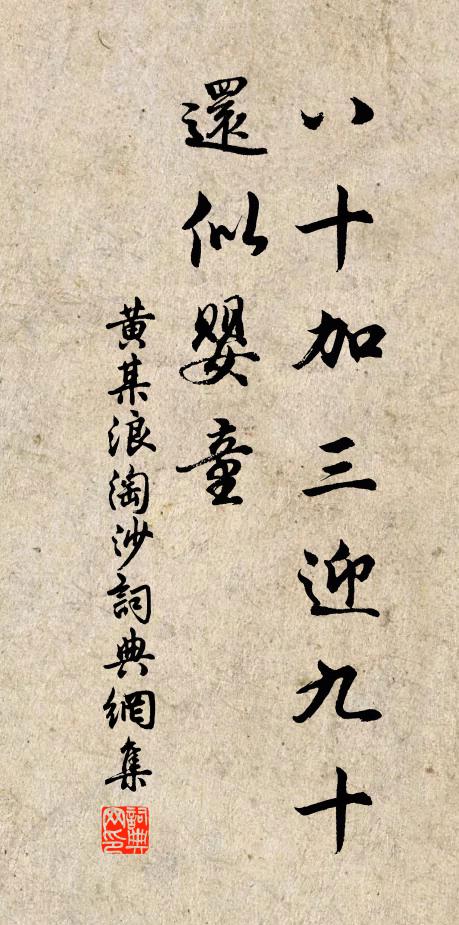 八十加三迎九十
還似嬰童
黃某浪淘沙詞典網集
詞典网印